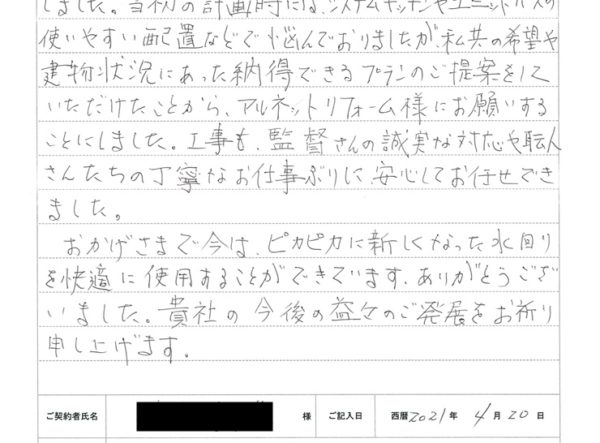 しました。当初の計画時には、システムキッチンやユニットバスの
使いやすい配置などで悩んでおりましたが、私共の希望や
建物状況にあった納得できるプランのご提案をして
いただけたことから、アルネットリフォーム様にお願いする
ことにしました。工事も、監督さんの誠実な対応や職人
さんたちの丁寧なお仕事ぶりに、安心してお任せでき
ました。
おかげさまで今は、ピカピカに新しくなった水回り
を快適に使用することができています。ありがとうござ
いました。貴社の今後の益々のご発展をお祈り
申し上げます。
ご契約者氏名 様 ご記入日 西暦2021年 4月20日